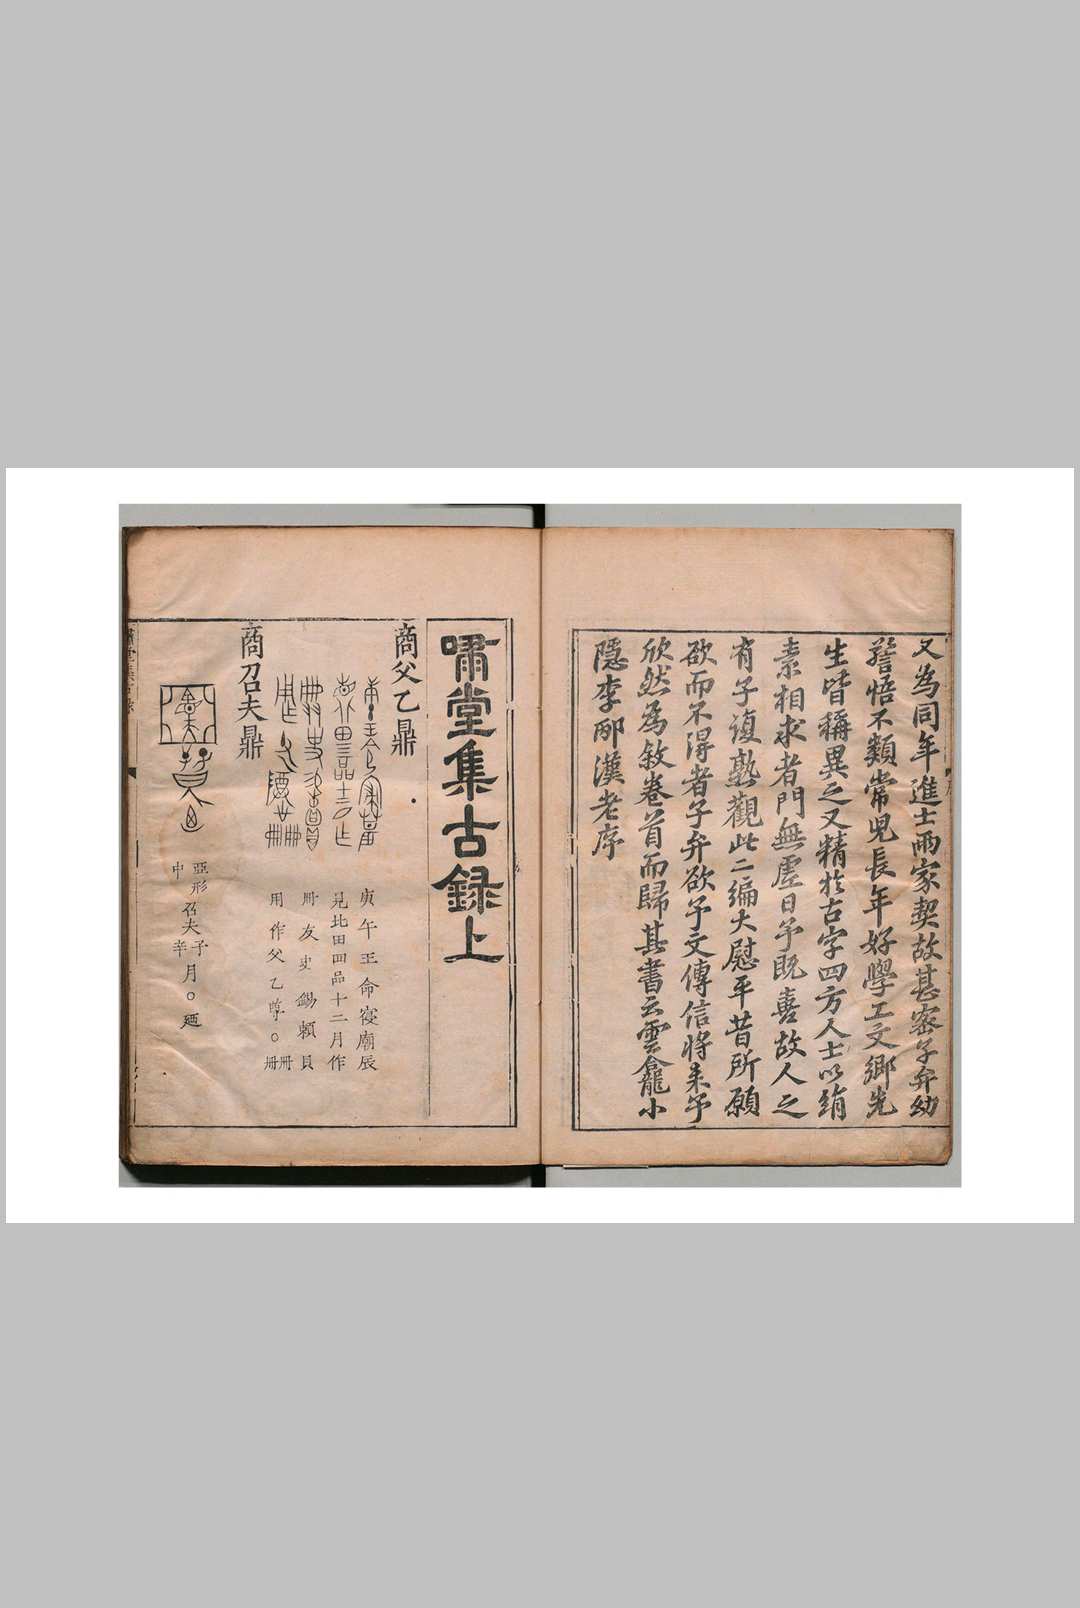 又為同年進士兩家契故甚密子弁幼
警悟不類常兒長年好學工文鄉先
生皆稱異之又精於古字四方人士以絹
素相求者門無虛日予既喜故人之
有子復熟觀此二編大慰平昔所願
欲而不得者子弁欲予文傳信將来予
欣然為敘卷首而歸其書云雲龕小
隱李邴漢老序
嘯堂集古録上
商父乙鼎
庚午王命寝廟辰
見北田四品十二月作
冊友史錫賴貝
用作父乙尊○冊冊
商召夫鼎
亞形召夫子月○廼
中辛